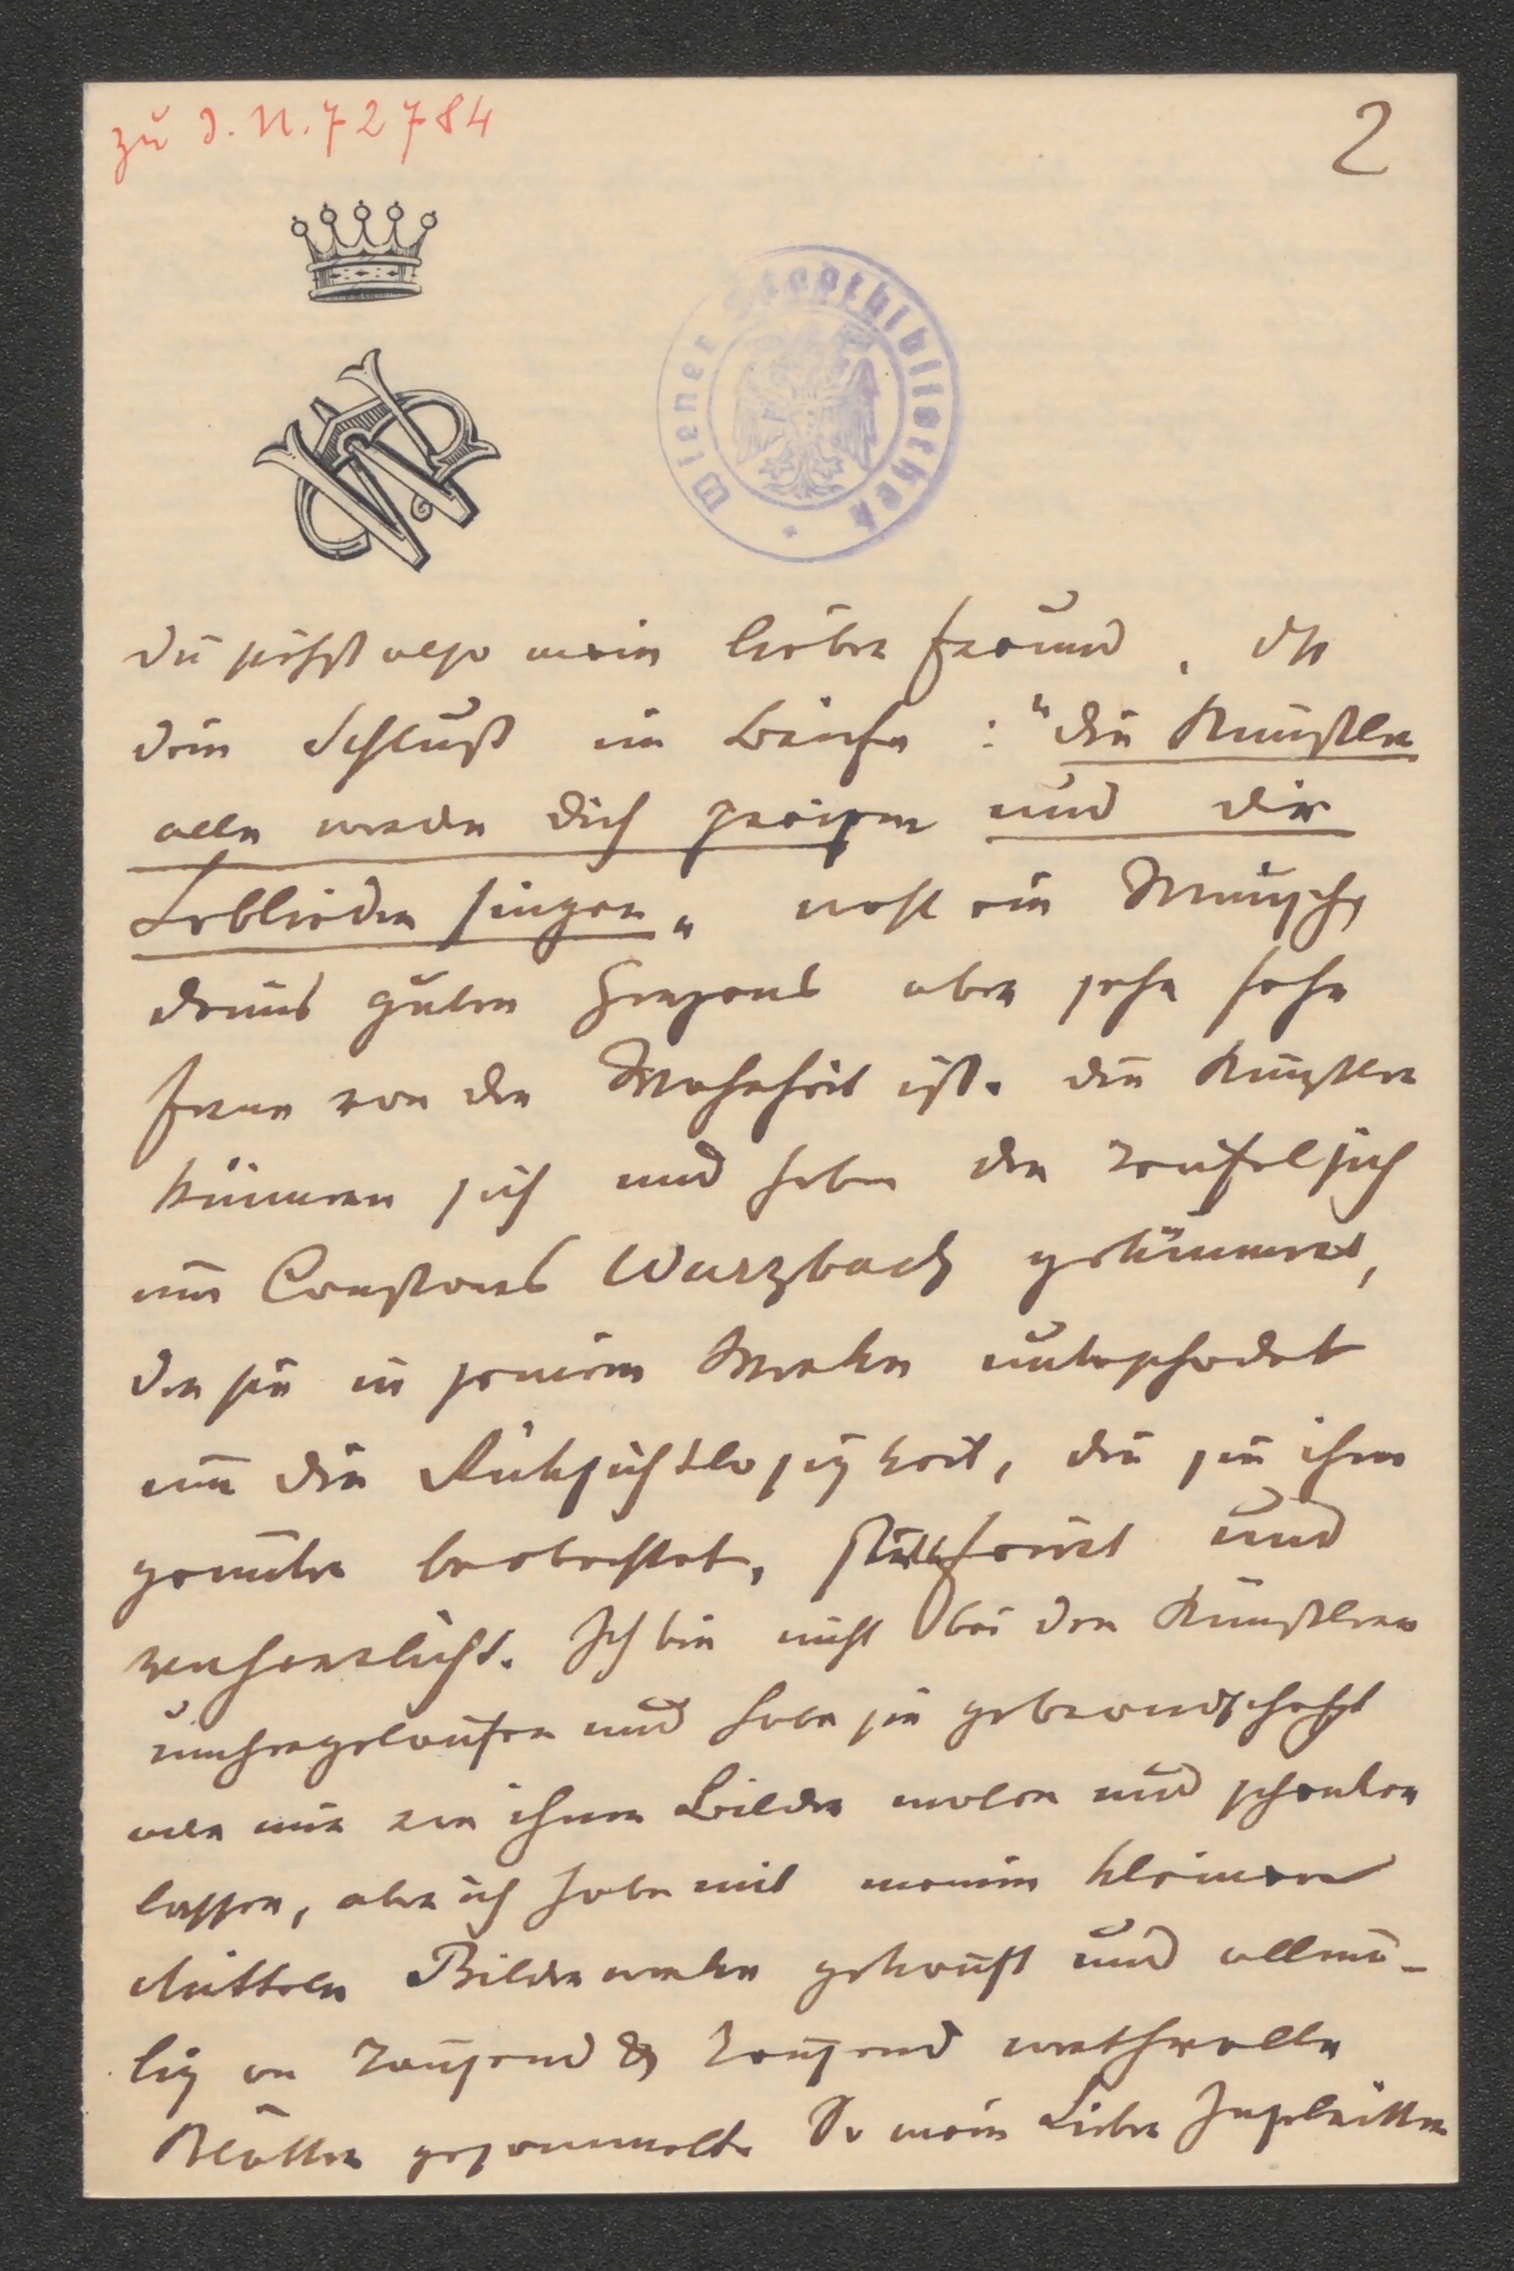 zu I. N. 72784
2
Wiener Stadtbibliothek
Du siehst also mein lieber Freund, dß
dein Schluß im Briefe: "die Künstler
alle werden dich preisen und dir
Loblieder singen" wohl ein Wunsch
deines guten Herzens aber sehr sehr
ferne von der Wahrheit ist. Die Künstler
kümmern sich und haben den Teufel sich
um Constant Wurzbach gekümmert,
der sie in seinem Werke
um die Rücksichtslosigkeit, die sie ihm
gegenüber beobachtet, und
verherrlicht. Ich bin nicht bei den Künstlern
umhergelaufen und habe sie gebrandschatzt
oder mir von ihnen Bilder malen und schenken
lassen, aber ich habe mit meinen kleinen
Mitteln Bilderwerke gekauft und allmä-
lig an Tausend & Tausend werthvolle
Blätter gesammelt. So mein Lieber